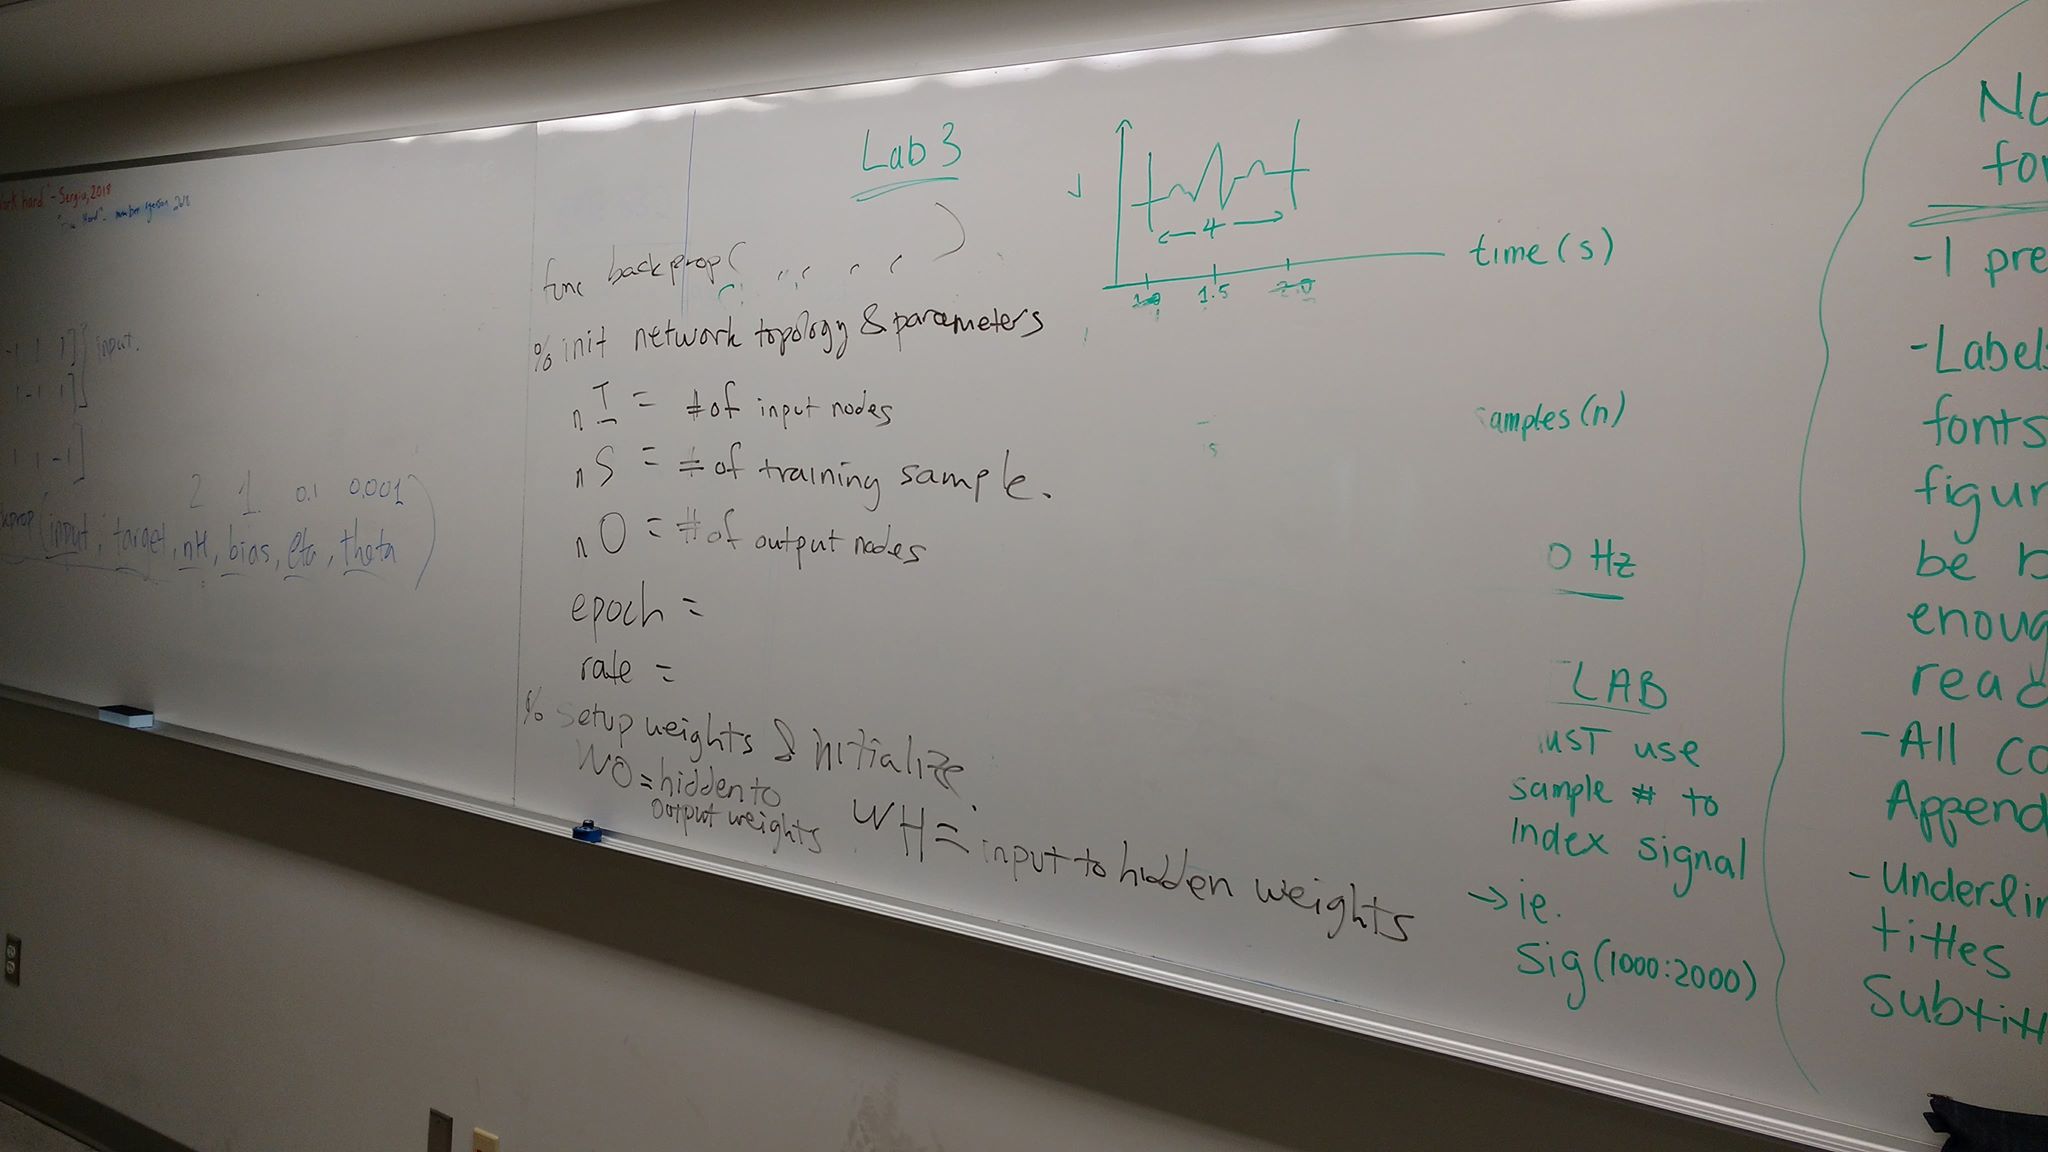 ork hard" - Sergiu, 2018
-1 1 1] input.
1 -1 1]
1 1 -1]
2 1 0.1 0.001
kprop(input, target, nH, bias, eta, theta)
Lab 3
func backprop( , , , , )
% init network topology & parameters
nI = # of input nodes
nS = # of training sample.
nO = # of output nodes
epoch =
rate =
% Setup weights & initialize.
WO = hidden to
output weights
WH = input to hidden weights
4
time (s)
1.5 2.0
amples (n)
0 Hz
LAB
UST use
sample # to
Index signal
→ ie.
Sig(1000:2000)
No
for
- 1 pre
- Labels
fonts
figur
be b
enoug
read
- All co
Append
- Underlin
titles
Subtitl